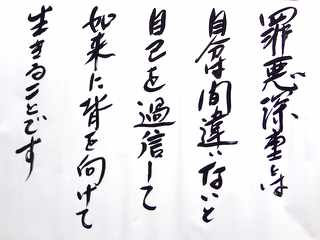 罪悪深重とは
自分は間違いないと
自己を過信して
如来に背を向けて
生きることです